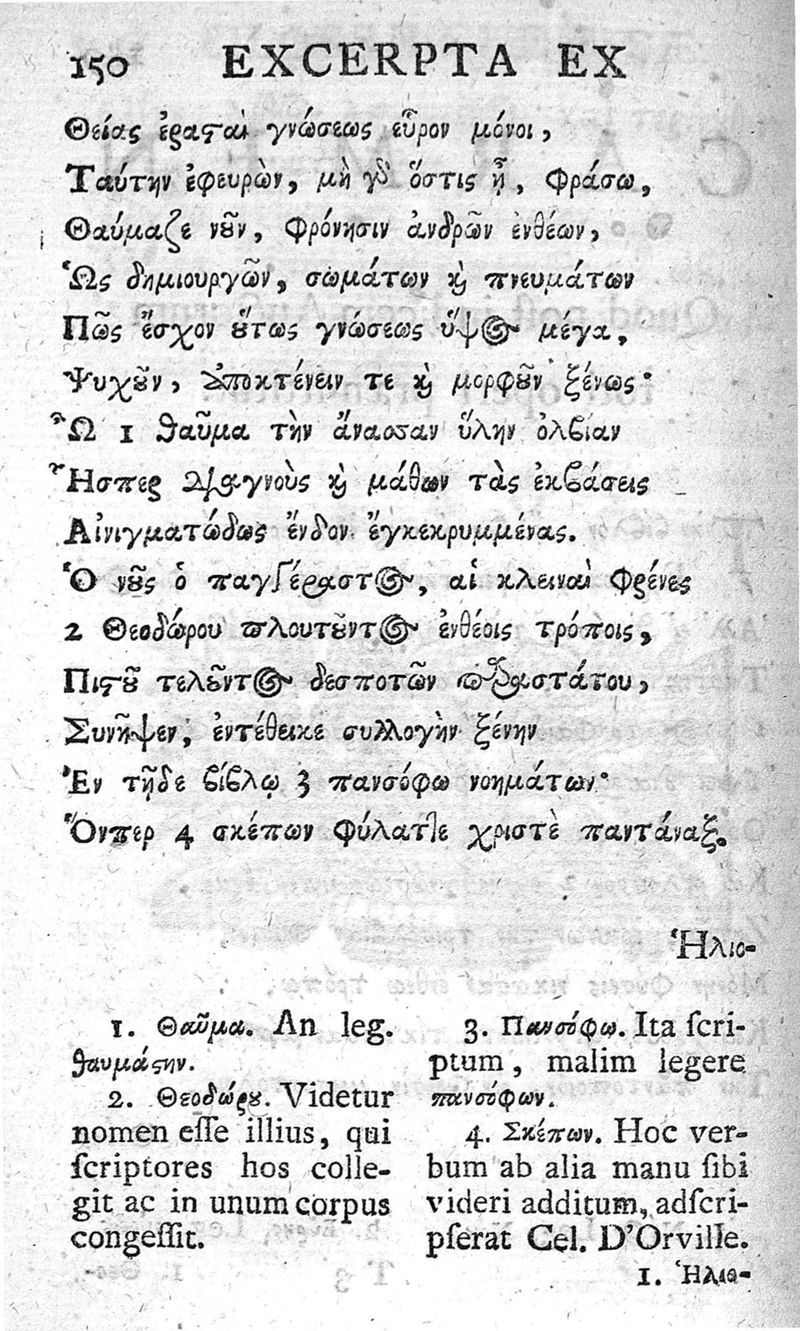 150 EXCERPTA EX
Θείας ἐραϛαὶ γνώσεως εὗρον μόνοι,
Ταύτην ἐφευρὼν, μὴ γδ ὅστις ᾖ, Φράσω,
Θαύμαζε νοῦν, Φρόνησιν ἀνδρῶν ἐνθέων,
Ὡς δημιουργῶν, σωμάτων ϗ πνευμάτων
Πῶς ἔσχον οὕτως γνώσεως ὕψος μέγα,
Ψυχοῦν, ἀποκτένειν τε ϗ μορφοῦν ξένως·
Ὢ 1 θαῦμα τὴν ἄνασσαν ὕλην ὀλβίαν
Ἧσπερ διαγνοὺς ϗ μάθων τὰς ἐκβάσεις
Αἰνιγματώδως ἔνδον ἔγκεκρυμμένας.
Ὁ νοῦς ὁ παγγέραστος, αἱ κλειναὶ Φρένες
2 Θεοδώρου πλουτοῦντος ἐνθέοις τρόποις,
Πιϛοῦ τελοῦντος δεσποτῶν παραστάτου,
Συνῆψεν, ἐντέθεικε συλλογὴν ξένην
Ἐν τῇδε βίβλῳ 3 πανσόφω νοημάτων·
Ὅνπερ 4 σκέπων φύλαττε χριστὲ παντάναξ.
Ἡλιο-
1. Θαῦμα. An leg.
θαυμάϛην.
2. Θεοδώρου. Videtur
nomen eſſe illius, qui
ſcriptores hos colle-
git ac in unum corpus
congeſſit.
3. Πανσόφω. Ita ſcri-
ptum, malim legere
πανσόφων.
4. Σκέπων. Hoc ver-
bum ab alia manu ſibi
videri additum, adſcri-
pſerat Cel. D'Orville.
1. Ἡλιο-